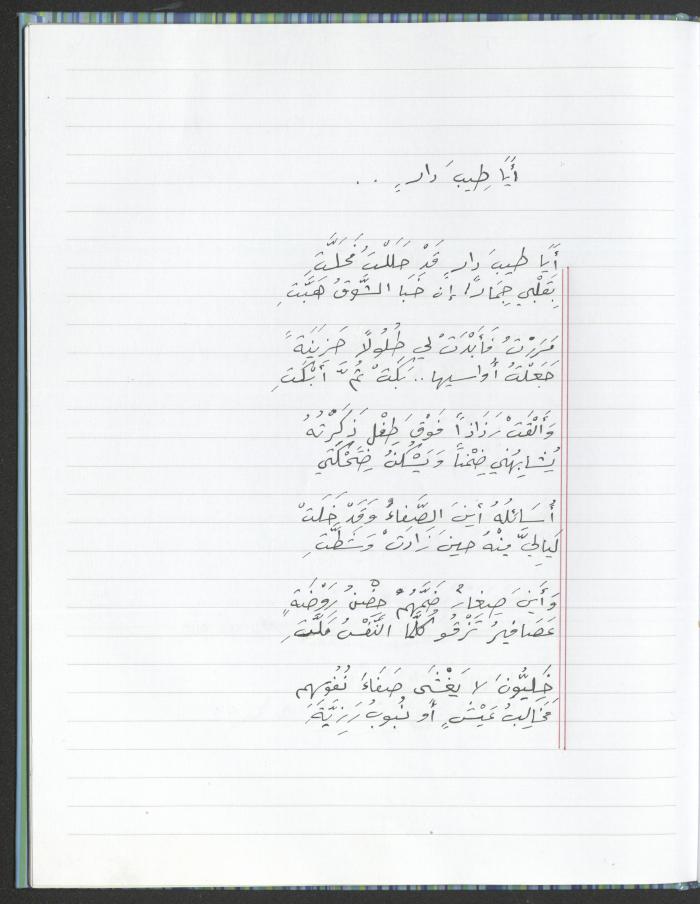 أَيَا طِيبَ دارٍ ..
أَيَا طيبَ دارٍ قَدْ حَلَلْتُ مَحَلَّتِ
بِقَلْبي جِمَارًا إن خَبَا الشَّوْقُ هَبَّتِ
مَرَرْتُ فَأَبْدَتْ لي طُلُولًا حَزِينَةً
جَعَلْتُ أُواسيها .. بَكَتْ ثُمَّ أَبْكَتِ
وَأَلْقَتْ رَذَاذاً فَوْقَ طِفْلٍ ذَكَرْتُهُ
يُشَابِهُني ضِمْناً وَيَسْكُنُ ضِحْكَتي
أُسَائلُهُ أينَ الصَّفاءُ وَقَدْ خَلَتْ
لَيَالِيَّ مِنْهُ حينَ زَادَتْ وَشَطَّتِ
وَأَينَ صِغارٌ ضَمَّهُمْ حِضْنُ رَوْضَةٍ
عَصَافيرُ تَزْقُو كُلَّما النَّفْسُ مَلَّتِ
خَلِيُّونَ لا يَغْشَى صَفَاءَ نُفُوسِهم
مَخَالِبُ عَيْشٍ أو نُيُوبُ رَزِيَّةِ